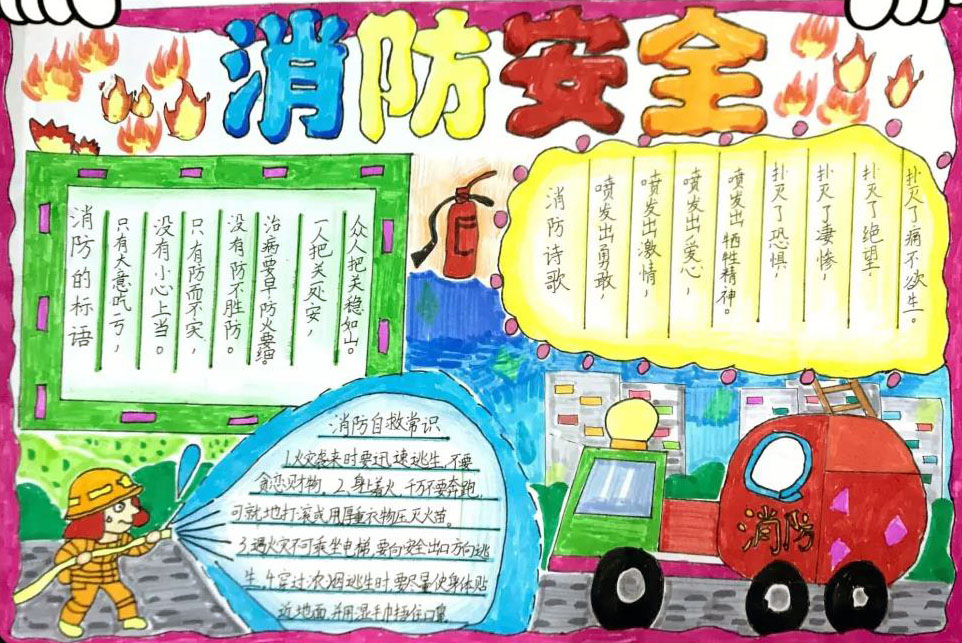 消防安全
消防的标语
只有大意吃亏，
没有小心上当。
只有防而不实，
没有防不胜防。
治病要早，防火要细。
一人把关一处安，
众人把关稳如山。
消防诗歌
喷发出勇敢，
喷发出激情，
喷发出爱心，
喷发出牺牲精神。
扑灭了恐惧，
扑灭了凄惨，
扑灭了绝望，
扑灭了痛不欲生。
消防自救常识
1.火灾袭来时要迅速逃生，不要
贪恋财物。2.身上着火，千万不要奔跑，
可就地打滚或用厚重衣物压灭火苗。
3.遇火灾不可乘坐电梯，要向安全出口方向逃
生。4.穿过浓烟逃生时要尽量使身体贴
近地面，并用湿毛巾捂住口鼻
消防